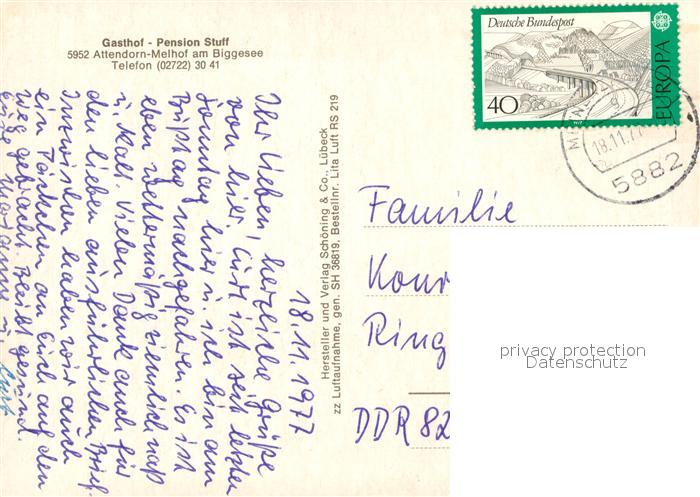 Gasthof - Pension Stuff
5952 Attendorn-Melhof am Biggesee
Telefon (02722) 30 41
18.11.1977
Ihr Lieben, herzliche Grüße
von hier. Curt ist seit letzten
Sonntag hier u. ich bin am
Bußtag nachgefahren. Es ist
eben wettermäßig ziemlich naß
u. kalt. Vielen Dank auch für
den lieben ausführlichen Brief.
Inzwischen haben wir auch
ein Päckchen an Euch auf den
Weg gebracht. Bleibt gesund.
Eure Marianne u. Curt
Hersteller und Verlag Schöning & Co., Lübeck
zz Luftaufnahme, gen. SH 36819, Bestellnr. Lita Luft RS 219
Deutsche Bundespost
40
EUROPA
18.11.77
5882
Familie
Konr
Ring
DDR 82
privacy protection
Datenschutz